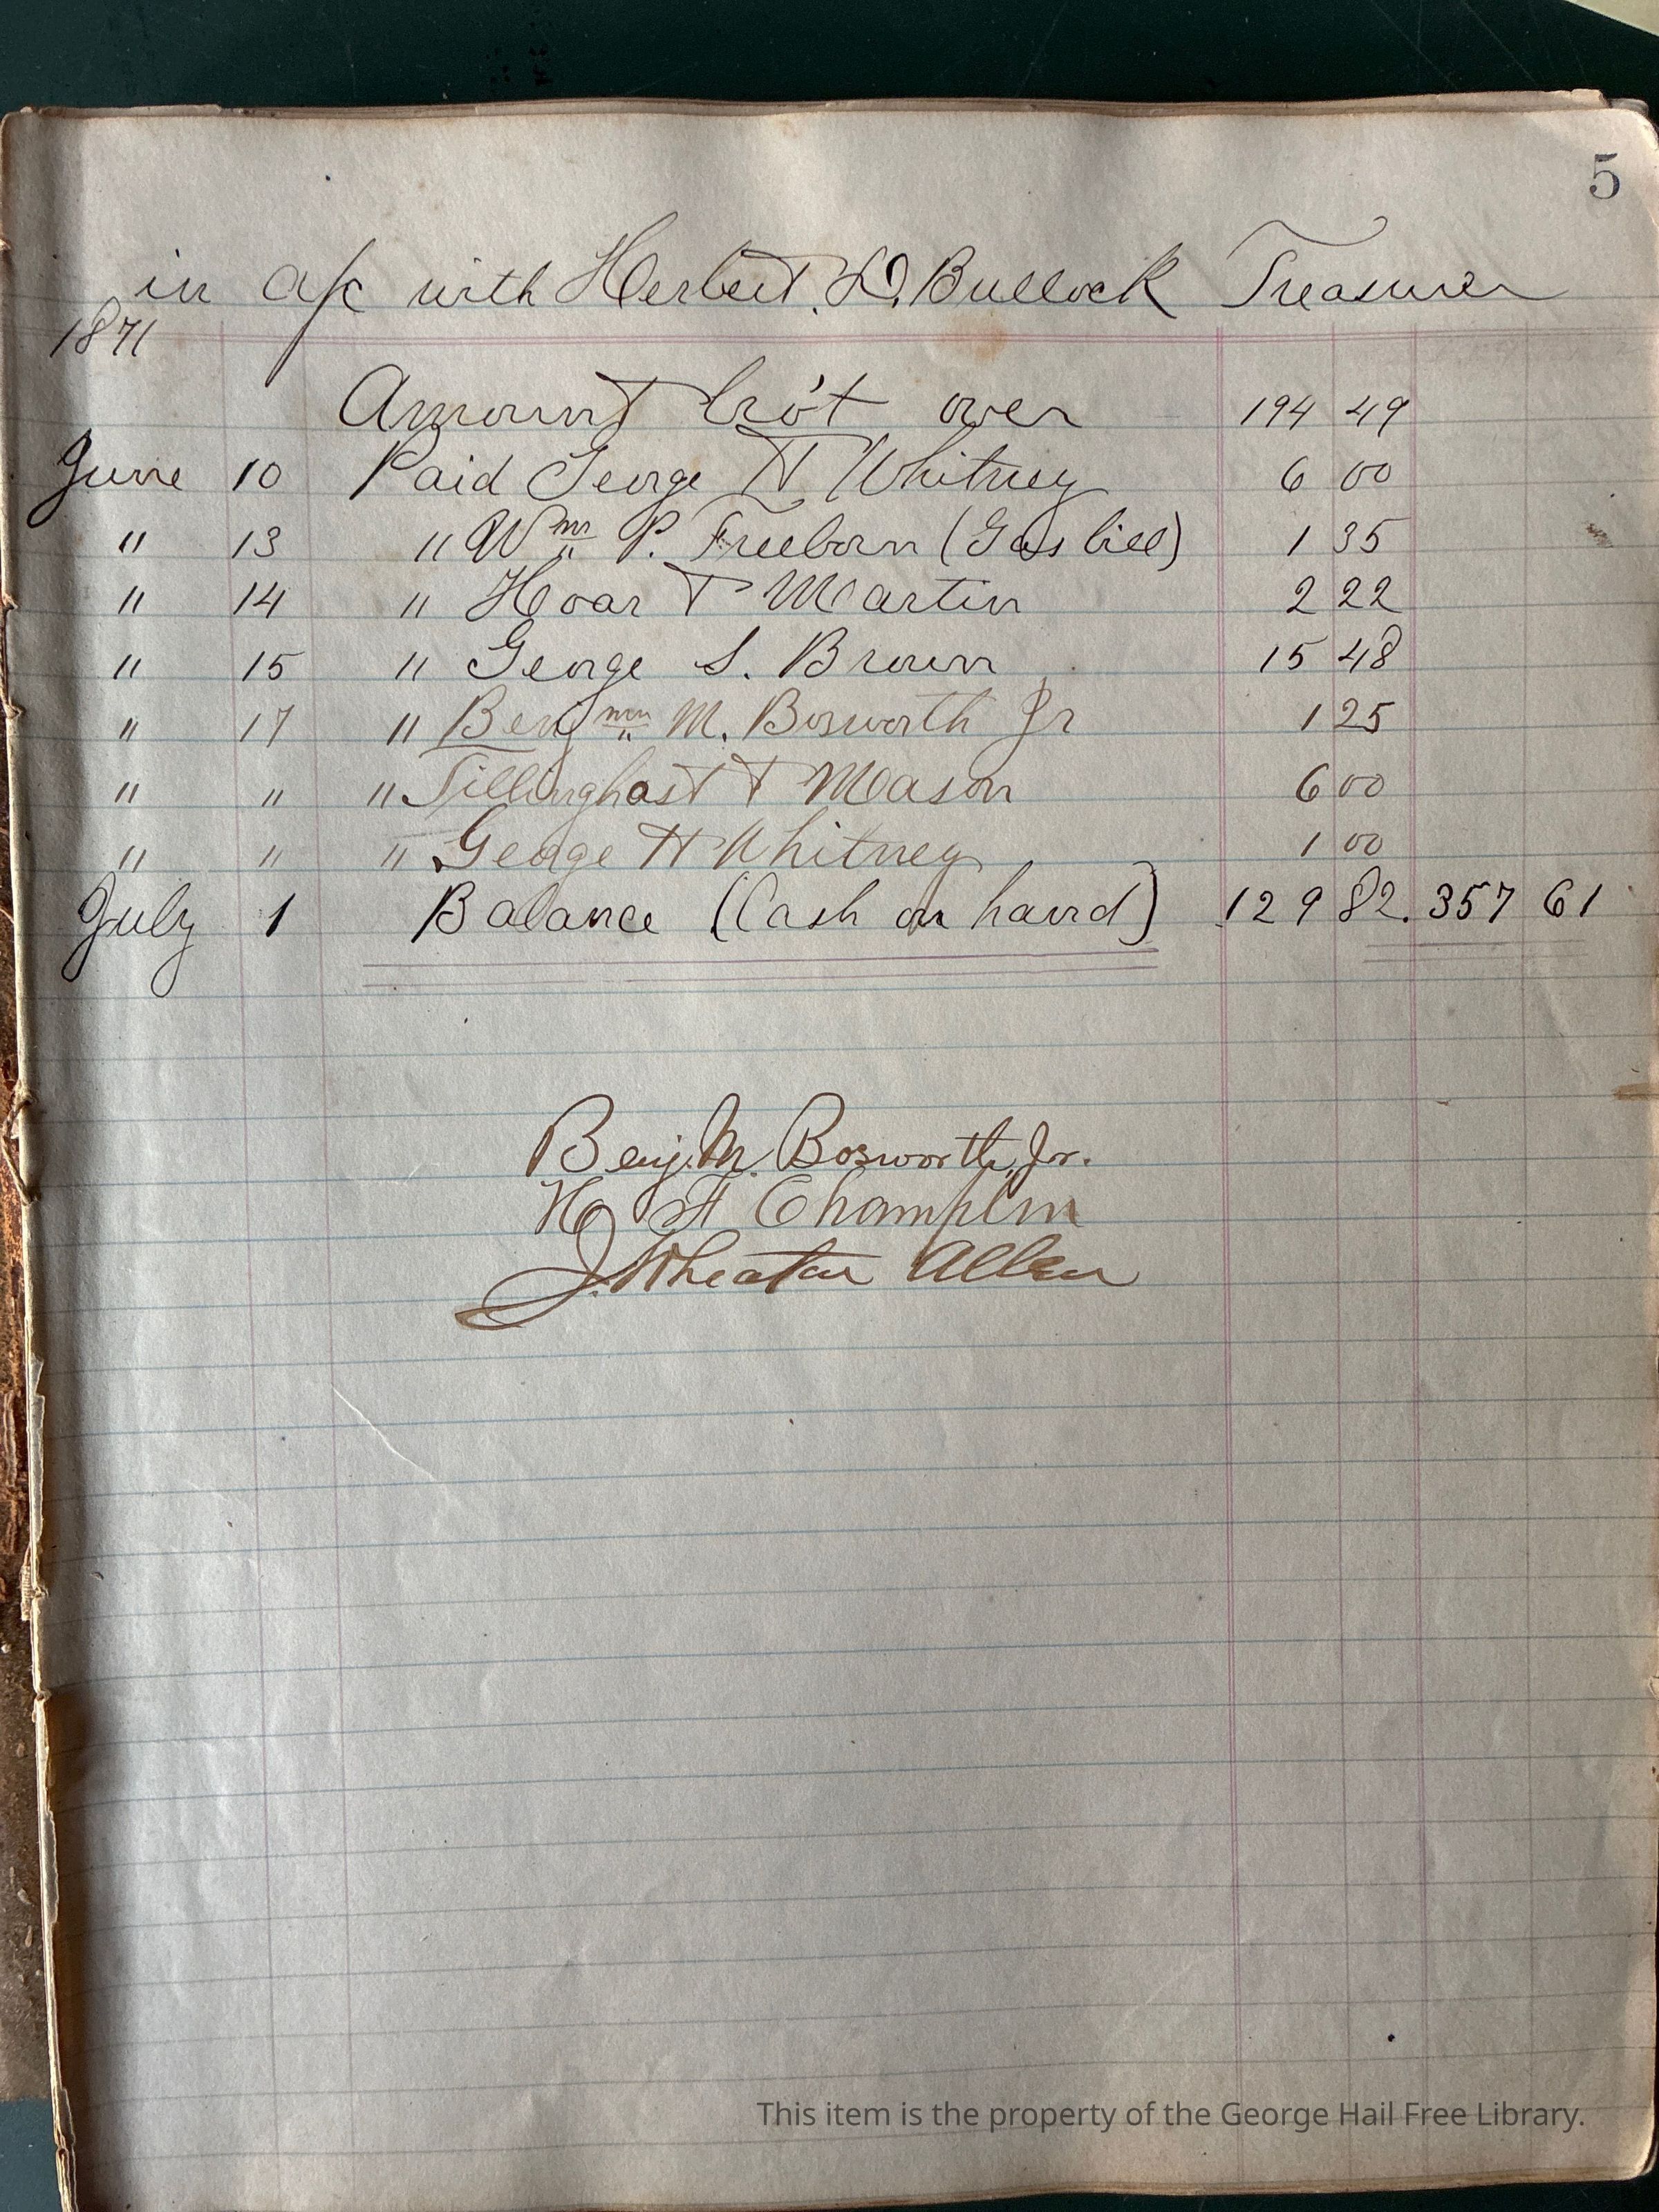 5
in a/c with Herbert. D. Bullock Treasurer
1871
Amount bro't over 194 49
June 10 Paid George H Whitney 6 00
" 13 " Wm P. Freeborn (Gas bill) 1 35
" 14 " Hoar & Martin 2 22
" 15 " George S. Brown 15 48
" 17 " Benjmn M. Bosworth Jr 1 25
" " " Tillinghast & Mason 6 00
" " " George H Whitney 1 00
July 1 Balance (Cash on hand) 129 82. 357 61
Benj. M. Bosworth, Jr.
H Champlin
J. Wheaton Allen
This item is the property of the George Hail Free Library.